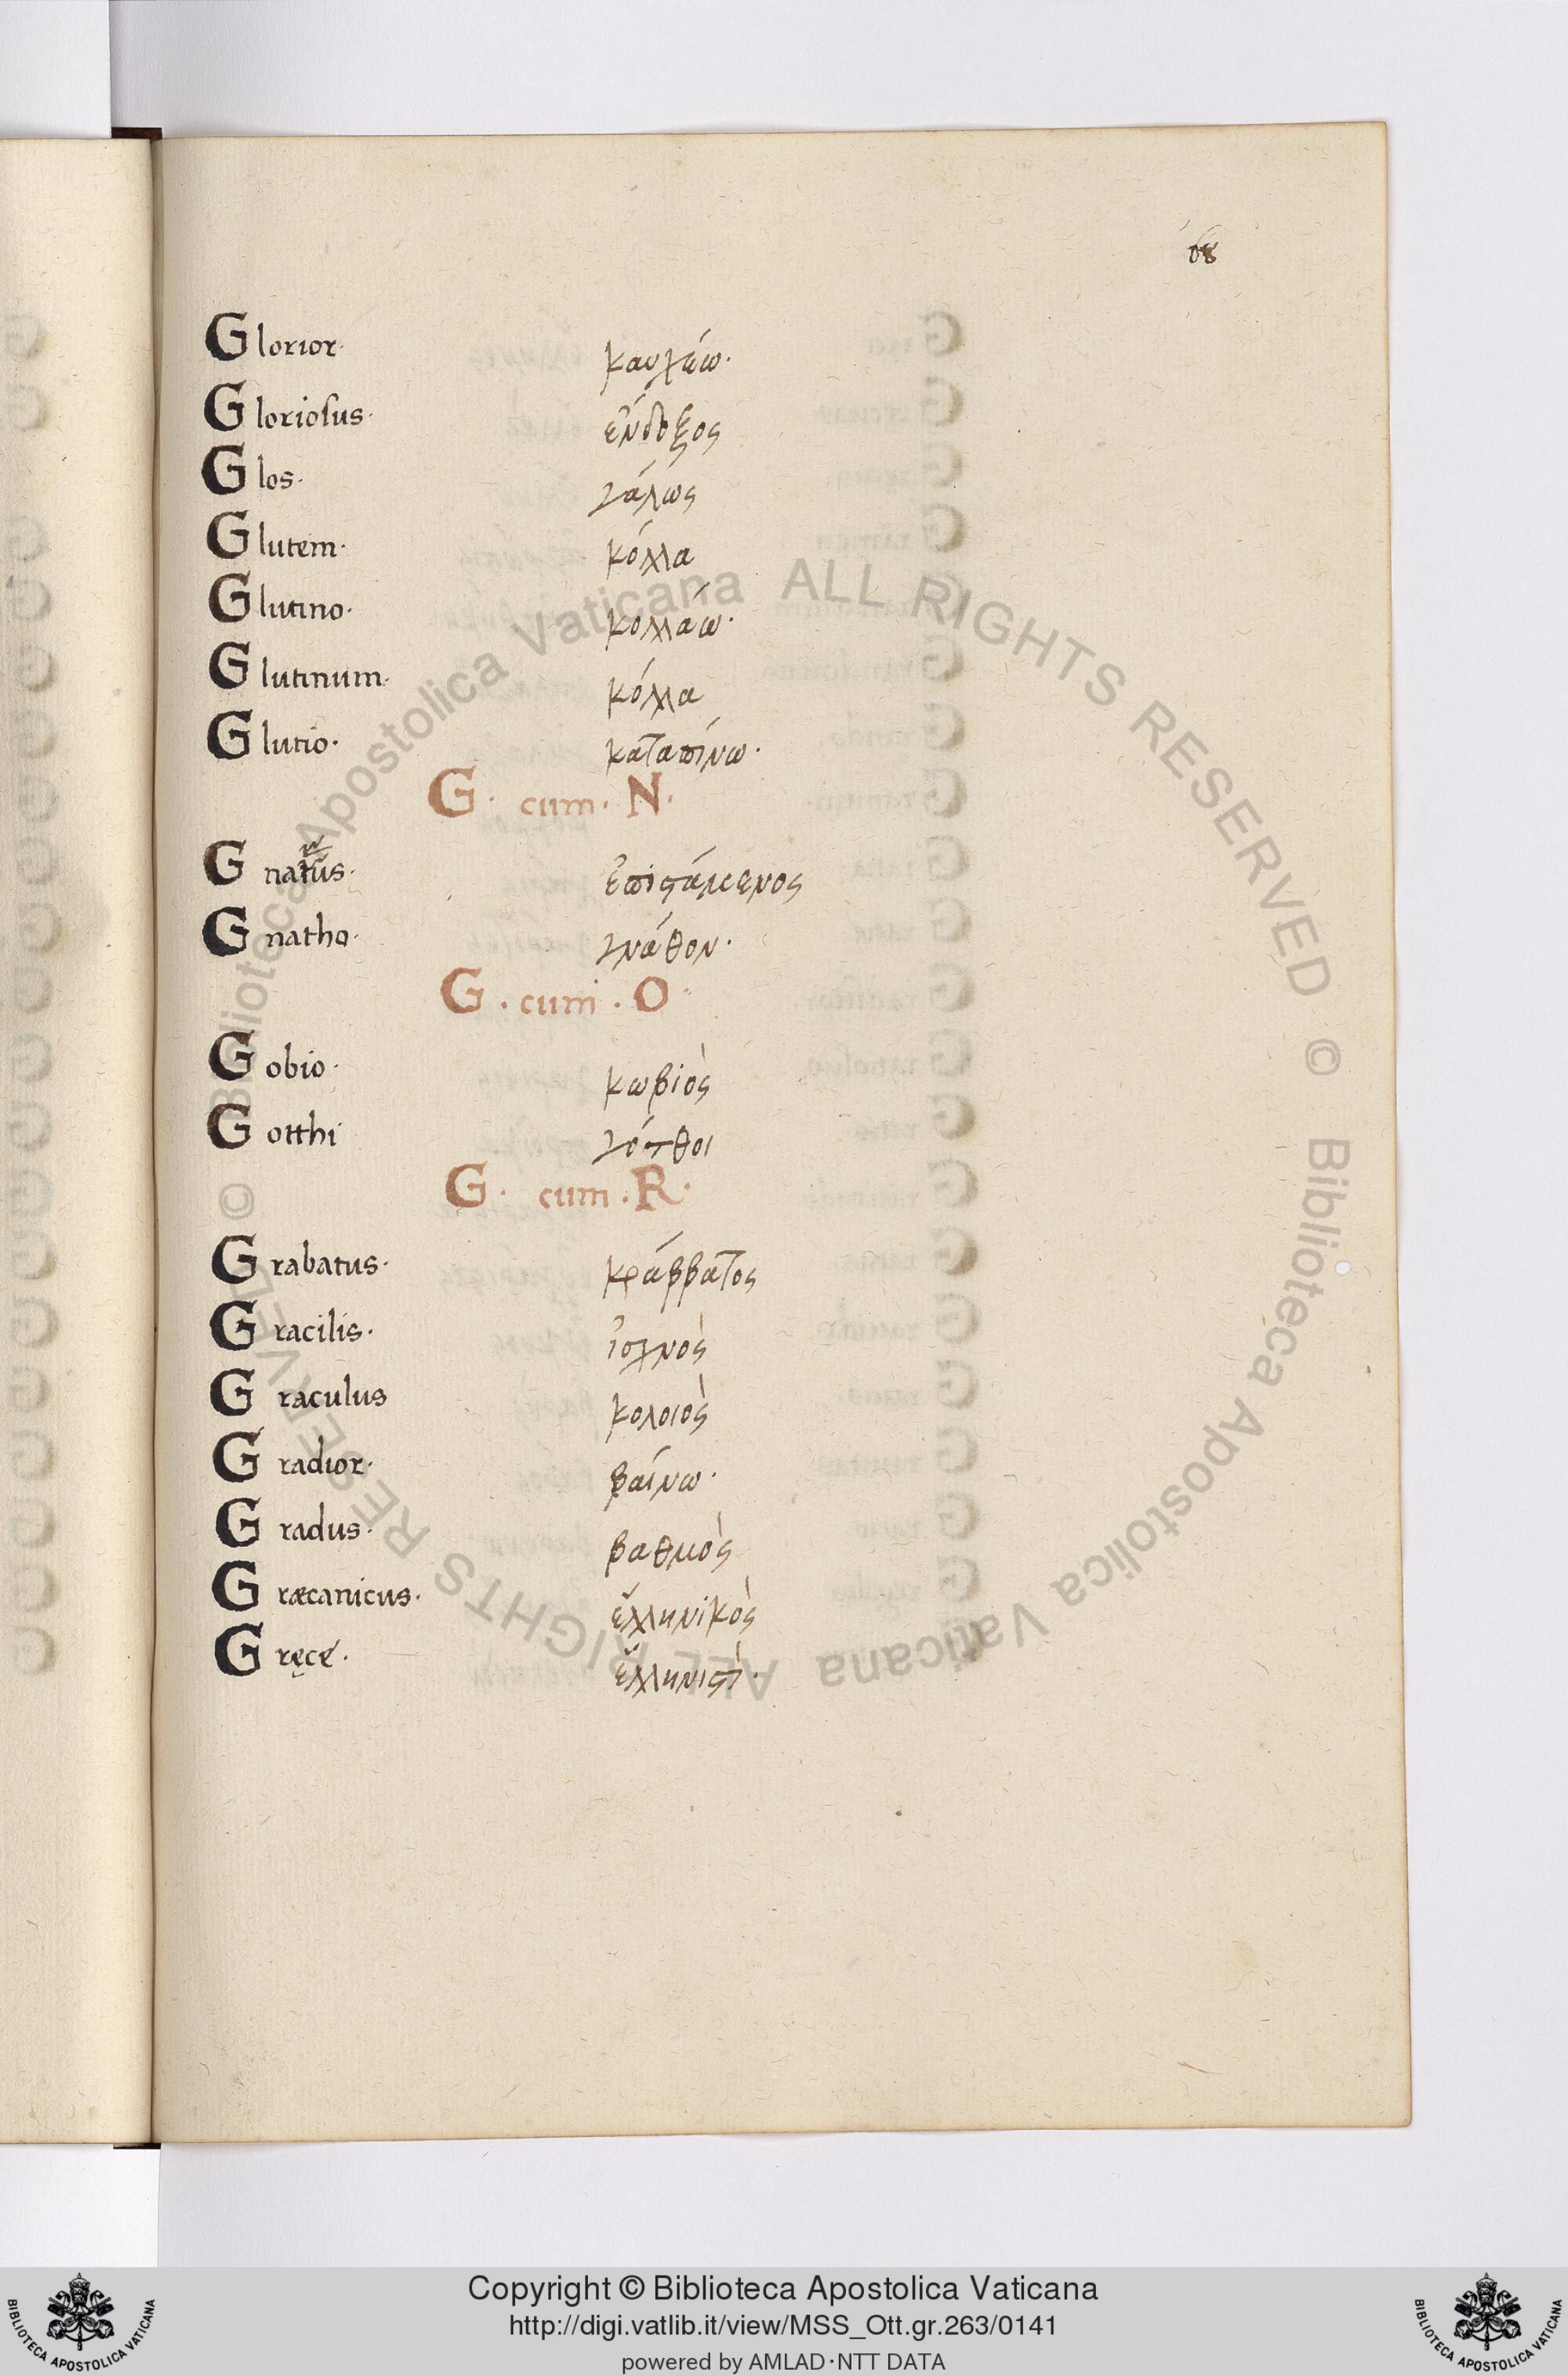 68
Glorior· καυχάω·
Gloriosus· ἔνδοξος
Glos· γάλως
Glutem· κόλλα
Glutino· κολλάω·
Glutinum· κόλλα
Glutio· καταπίνω·
G· cum· N·
Gnatus· ἐπιστάμενος
Gnatho· γνάθον·
G· cum· O·
Gobio· κωβιὸς
Gotthi γότθοι
G· cum· R·
Grabatus· κράββατος
Gracilis· ἰσχνὸς
Graculus κολοιὸς
Gradior· βαίνω·
Gradus· βαθμὸς
Græcanicus· ἑλληνικὸς
Gręcé· ἑλληνιστὶ·
© Biblioteca Apostolica Vaticana ALL RIGHTS RESERVED © Biblioteca Apostolica Vaticana ALL RIGHTS RESERVED
Copyright © Biblioteca Apostolica Vaticana
http://digi.vatlib.it/view/MSS_Ott.gr.263/0141
powered by AMLAD·NTT DATA
BIBLIOTECA APOSTOLICA VATICANA
BIBLIOTECA APOSTOLICA VATICANA